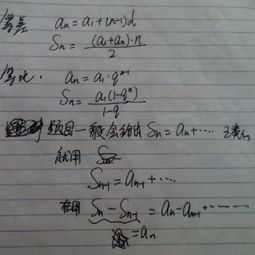 等差 aₙ = a₁ + (n-1)d
Sₙ = (a₁+aₙ)·n / 2
等比: aₙ = a₁·qⁿ⁻¹
Sₙ = a₁(1-qⁿ) / 1-q
题目一般会给出 Sₙ = aₙ + ⋯ 之类的
就用
Sₙ₋₁ = aₙ₋₁ + ⋯
在用 Sₙ - Sₙ₋₁ = aₙ - aₙ₋₁ + ⋯
= aₙ